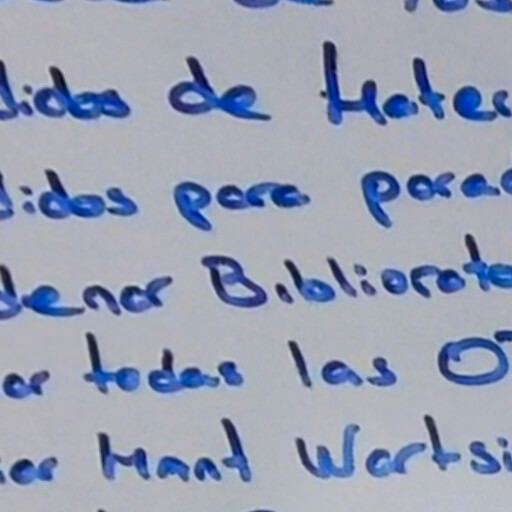 didos de Mater
didos para parad
denar Bibliorato
ar todas las OT
iar Mant Wartsi